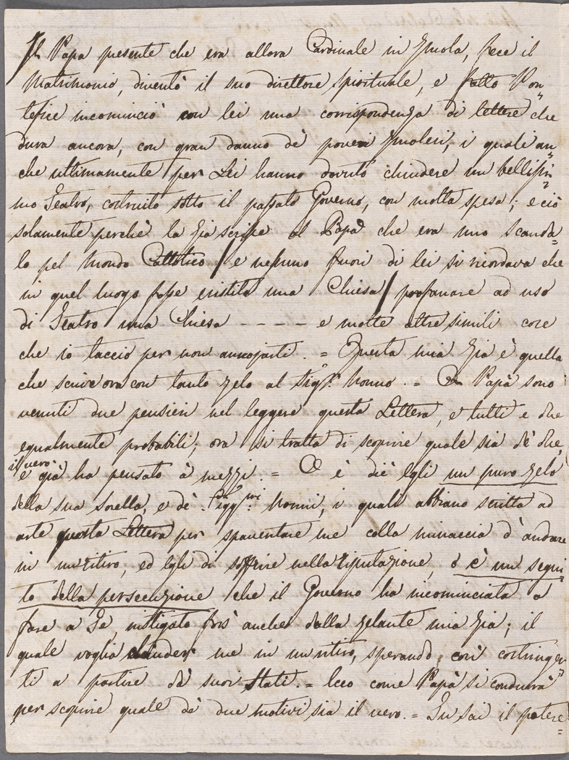 Il Papa presente che era allora Cardinale in Imola, fece il
Matrimonio, diventò il suo direttore spirituale, e fatto Pon=
tefice incominciò con lei una corrispondenza di lettere che
dura ancora, con gran danno de' poveri Imolesi, i quali an=
che ultimamente per Lei hanno dovuto chiudere un bellissi=
mo Teatro, costruito sotto il passato Governo, con molta spesa; e ciò
solamente perchè la Zia scrisse al Papa che era uno scanda=
lo pel Mondo Cattolico / e nessuno fuori di lei si ricordava che
in quel luogo fosse esistita una Chiesa / profanare ad uso
di Teatro una Chiesa - - - - e molte altre simili cose
che io taccio per non annojarti. = Questa mia Zia è quella
che scrive ora con tanto zelo al Sig.r Nonno. = A Papà sono
venuti due pensieri nel leggere questa Lettera, e tutti e due
egualmente probabili; ora si tratta di scoprire quale sia de' due
il vero
e già ha pensato à mezzi. = O è dic' Egli un puro zelo
della sua Sorella, e de' Sigg.ri Nonni, i quali abbiano scritta ad
arte questa Lettera per spaventare me colla minaccia d'andare
in un ritiro, ed Egli di soffrire nella riputazione, o è un segui=
to della persecuzione / che il Governo ha incominciata a
fare a Te instigato fors' anche dalla zelante mia Zia; il
quale voglia chiudere me in un ritiro, sperando così costringer=
ti a partire da' suoi Stati. = Ecco come Papà si condurrà
per scoprire quale de' due motivi sia il vero. = Tu sai il potere=